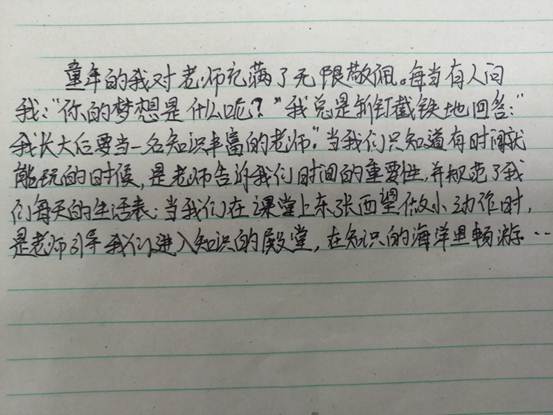 童年的我对老师充满了无限敬佩。每当有人问
我:“你的梦想是什么呢?”我总是斩钉截铁地回答:“
我长大后要当一名知识丰富的老师”。当我们只知道有时间就
能玩的时候,是老师告诉我们时间的重要性,并规范了我
们每天的生活表;当我们在课堂上东张西望做小动作时,
是老师引导我们进入知识的殿堂,在知识的海洋里畅游…